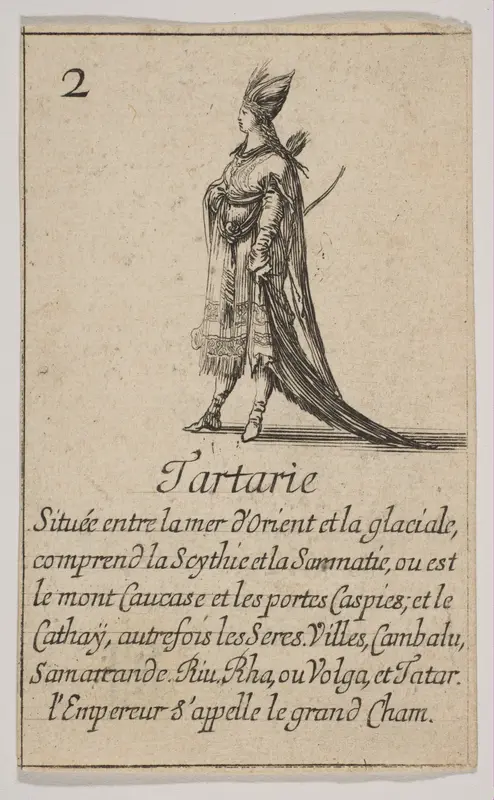 2
Tartarie
Située entre la mer d'Orient et la glaciale,
comprend la Scythie et la Sarmatie, ou est
le mont Caucase et les portes Caspies; et le
Cathaÿ, autrefois les Seres. Villes, Cambalu,
Samarcande. Riu, Rha, ou Volga, et Tatar.
l'Empereur s'appelle le grand Cham.